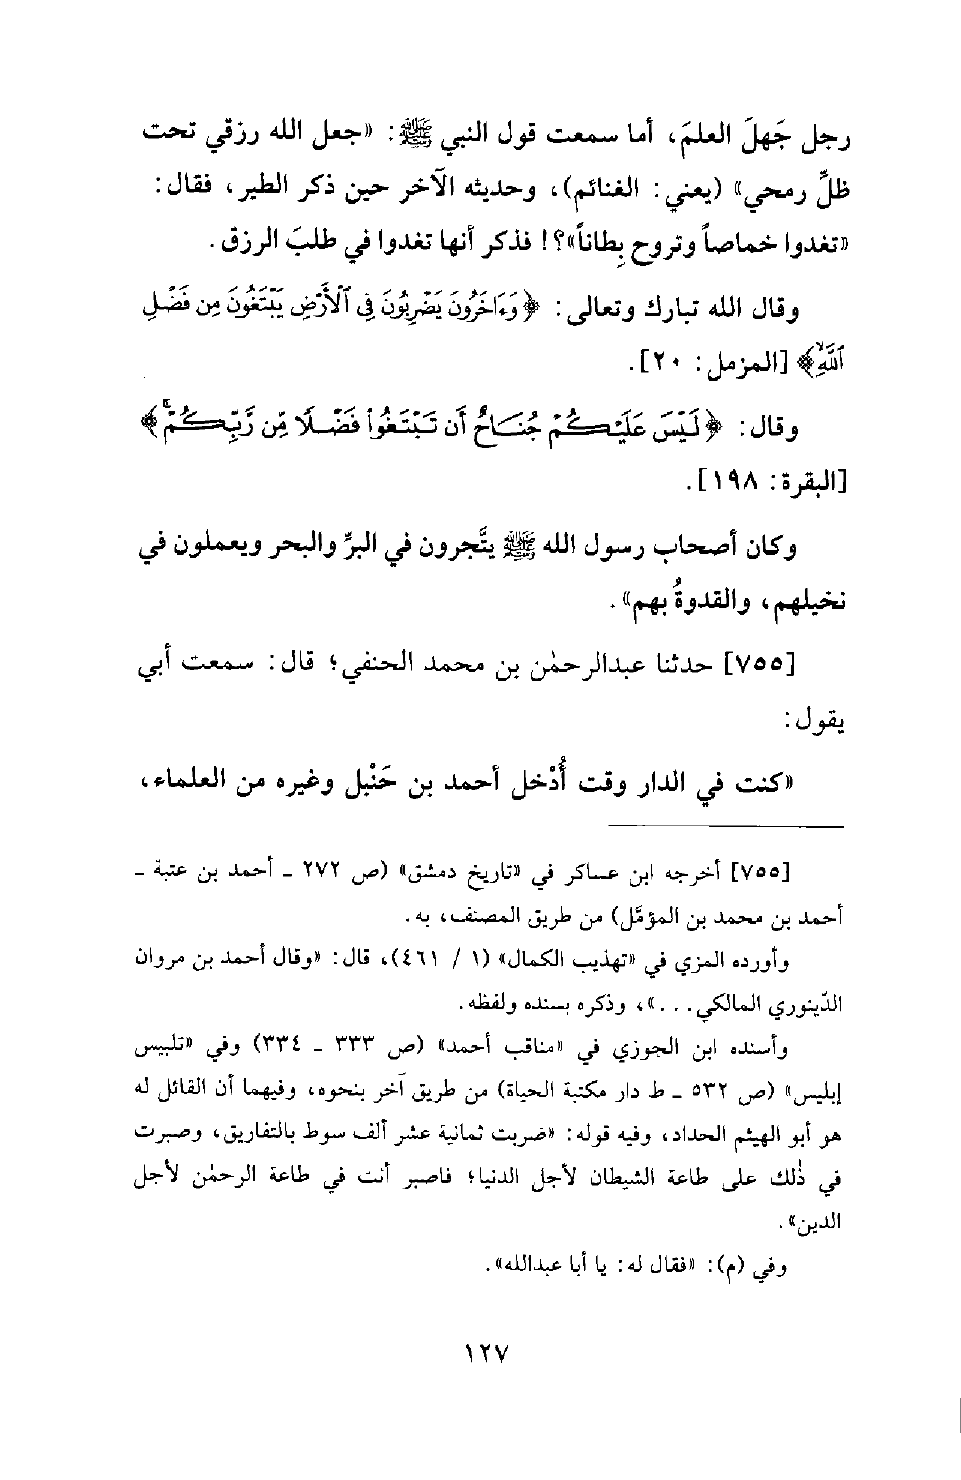 رجل جَهلَ العلمَ، أما سمعت قول النبي ﷺ: «جعل الله رزقي تحت
ظلِّ رمحي» (يعني: الغنائم)، وحديثه الآخر حين ذكر الطير، فقال:
«تغدوا خماصاً وتروح بِطاناً»؟! فذكر أنها تغدوا في طلبَ الرزق.
وقال الله تبارك وتعالى: ﴿وَءَاخَرُونَ يَضْرِبُونَ فِى ٱلْأَرْضِ يَبْتَغُونَ مِن فَضْلِ
ٱللَّهِۙ﴾ [المزمل: ٢٠].
وقال: ﴿لَيْسَ عَلَيْكُمْ جُنَاحٌ أَن تَبْتَغُوا۟ فَضْلًا مِّن رَّبِّكُمْۚ﴾
[البقرة: ١٩٨].
وكان أصحاب رسول الله ﷺ يتَّجرون في البرِّ والبحر ويعملون في
نخيلهم، والقدوةُ بهم».
[٧٥٥] حدثنا عبدالرحمٰن بن محمد الحنفي؛ قال: سمعت أبي
يقول:
«كنت في الدار وقت أُدْخل أحمد بن حَنْبل وغيره من العلماء،
[٧٥٥] أخرجه ابن عساكر في «تاريخ دمشق» (ص ٢٧٢ ـ أحمد بن عتبة ـ
أحمد بن محمد بن المؤمَّل) من طريق المصنف، به.
وأورده المزي في «تهذيب الكمال» (١ / ٤٦١)، قال: «وقال أحمد بن مروان
الدِّينوري المالكي...»، وذكره بسنده ولفظه.
وأسنده ابن الجوزي في «مناقب أحمد» (ص ٣٣٣ ـ ٣٣٤) وفي «تلبيس
إبليس» (ص ٥٣٢ ـ ط دار مكتبة الحياة) من طريق آخر بنحوه، وفيهما أن القائل له
هو أبو الهيثم الحداد، وفيه قوله: «ضربت ثمانية عشر ألف سوط بالتفاريق، وصبرت
في ذٰلك على طاعة الشيطان لأجل الدنيا؛ فاصبر أنت في طاعة الرحمٰن لأجل
الدين».
وفي (م): «فقال له: يا أبا عبدالله».
١٢٧